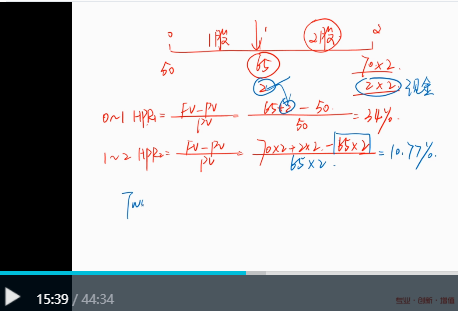 0 1股 1 2股 2
50 65 70×2
2 2×2 现金
0~1 HPR₁= FV-PV / PV = 65+2-50 / 50 = 34%.
1~2 HPR₂= FV-PV / PV = 70×2+2×2-65×2 / 65×2 = 10.77%.
TW
15:39 / 44:34
专业·创新·增值